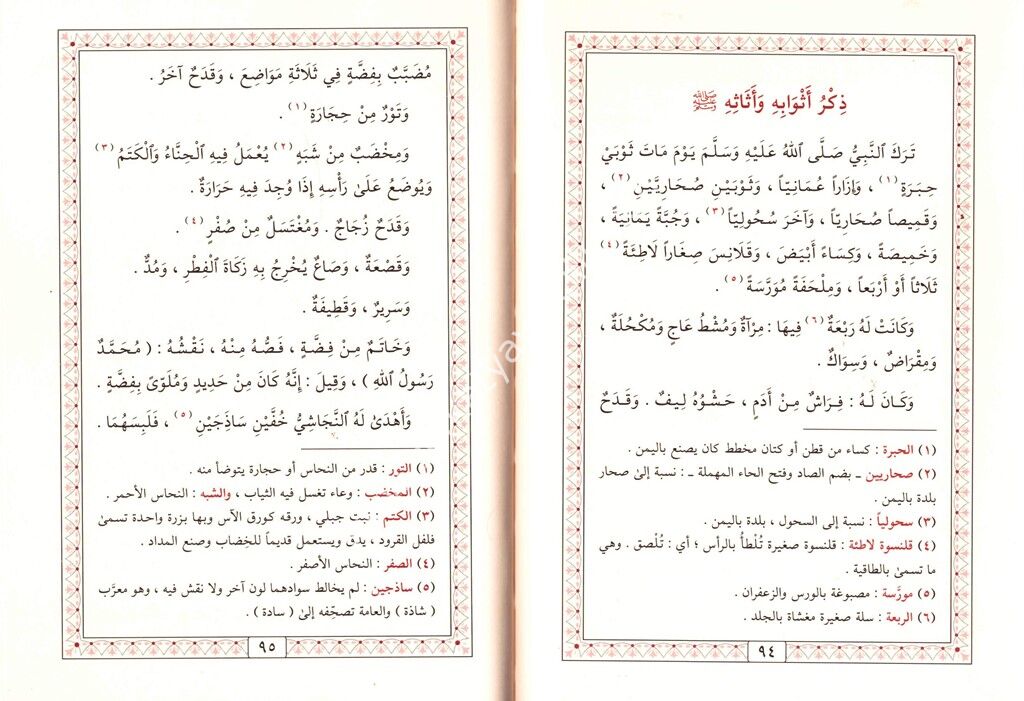 ذِكْرُ أَثْوَابِهِ وَأَثَاثِهِ ﷺ
تَرَكَ ٱلنَّبِيُّ صَلَّى ٱللهُ عَلَيْهِ وَسَلَّمَ يَوْمَ مَاتَ ثَوْبَيْ
حِبَرَةٍ (١) ، وَإِزَاراً عُمَانِيّاً ، وَثَوْبَيْنِ صُحَارِيَّيْنِ (٢) ،
وَقَمِيصاً صُحَارِيّاً ، وَآخَرَ سُحُولِيّاً (٣) ، وَجُبَّةً يَمَانِيَةً ،
وَخَمِيصَةً ، وَكِسَاءً أَبْيَضَ ، وَقَلَانِسَ صِغَاراً لَاطِئَةً (٤)
ثَلَاثاً أَوْ أَرْبَعاً ، وَمِلْحَفَةً مُوَرَّسَةً (٥) .
وَكَانَتْ لَهُ رَبْعَةٌ (٦) فِيهَا : مِرْآةٌ وَمُشْطُ عَاجٍ وَمُكْحُلَةٌ ،
وَمِقْرَاضٌ ، وَسِوَاكٌ .
وَكَانَ لَهُ : فِرَاشٌ مِنْ أَدَمٍ ، حَشْوُهُ لِيفٌ . وَقَدَحٌ
(١) الحبرة : كساء من قطن أو كتان مخطط كان يصنع باليمن .
(٢) صحاريين ـ بضم الصاد وفتح الحاء المهملة ـ : نسبة إلى صحار
بلدة باليمن .
(٣) سحولياً : نسبة إلى السحول ، بلدة باليمن .
(٤) قلنسوة لاطئة : قلنسوة صغيرة تُلْطأُ بالرأس ؛ أي : تُلْصق . وهي
ما تسمىٰ بالطاقية .
(٥) مورَّسة : مصبوغة بالورس والزعفران .
(٦) الربعة : سلة صغيرة مغشاة بالجلد .
٩٤
مُضَبَّبٌ بِفِضَّةٍ فِي ثَلَاثَةِ مَوَاضِعَ ، وَقَدَحٌ آخَرُ .
وَتَوْرٌ مِنْ حِجَارَةٍ (١) .
وَمِخْضَبٌ مِنْ شَبَهٍ (٢) يُعْمَلُ فِيهِ ٱلْحِنَّاءُ وَٱلْكَتَمُ (٣)
وَيُوضَعُ عَلَىٰ رَأْسِهِ إِذَا وُجِدَ فِيهِ حَرَارَةٌ .
وَقَدَحُ زُجَاجٌ . وَمُغْتَسَلٌ مِنْ صُفْرٍ (٤) .
وَقَصْعَةٌ ، وَصَاعٌ يُخْرِجُ بِهِ زَكَاةَ ٱلْفِطْرِ ، وَمُدٌّ .
وَسَرِيرٌ ، وَقَطِيفَةٌ .
وَخَاتَمٌ مِنْ فِضَّةٍ ، فَصُّهُ مِنْهُ ، نَقْشُهُ : ( مُحَمَّدٌ
رَسُولُ ٱللهِ ) ، وَقِيلَ : إِنَّهُ كَانَ مِنْ حَدِيدٍ وَمُلْوَىً بِفِضَّةٍ .
وَأَهْدَىٰ لَهُ ٱلنَّجَاشِيُّ خُفَّيْنِ سَاذَجَيْنِ (٥) ، فَلَبِسَهُمَا .
(١) التور : قدر من النحاس أو حجارة يتوضأ منه .
(٢) المخضب : وعاء تغسل فيه الثياب ، والشبه : النحاس الأحمر .
(٣) الكتم : نبت جبلي ، ورقه كورق الآس وبها بزرة واحدة تسمىٰ
فلفل القرود ، يدق ويستعمل قديماً للخِضاب وصنع المداد .
(٤) الصفر : النحاس الأصفر .
(٥) ساذجين : لم يخالط سوادهما لون آخر ولا نقش فيه ، وهو معرَّب
( شاذة ) والعامة تصحِّفه إلىٰ ( سادة ) .
٩٥